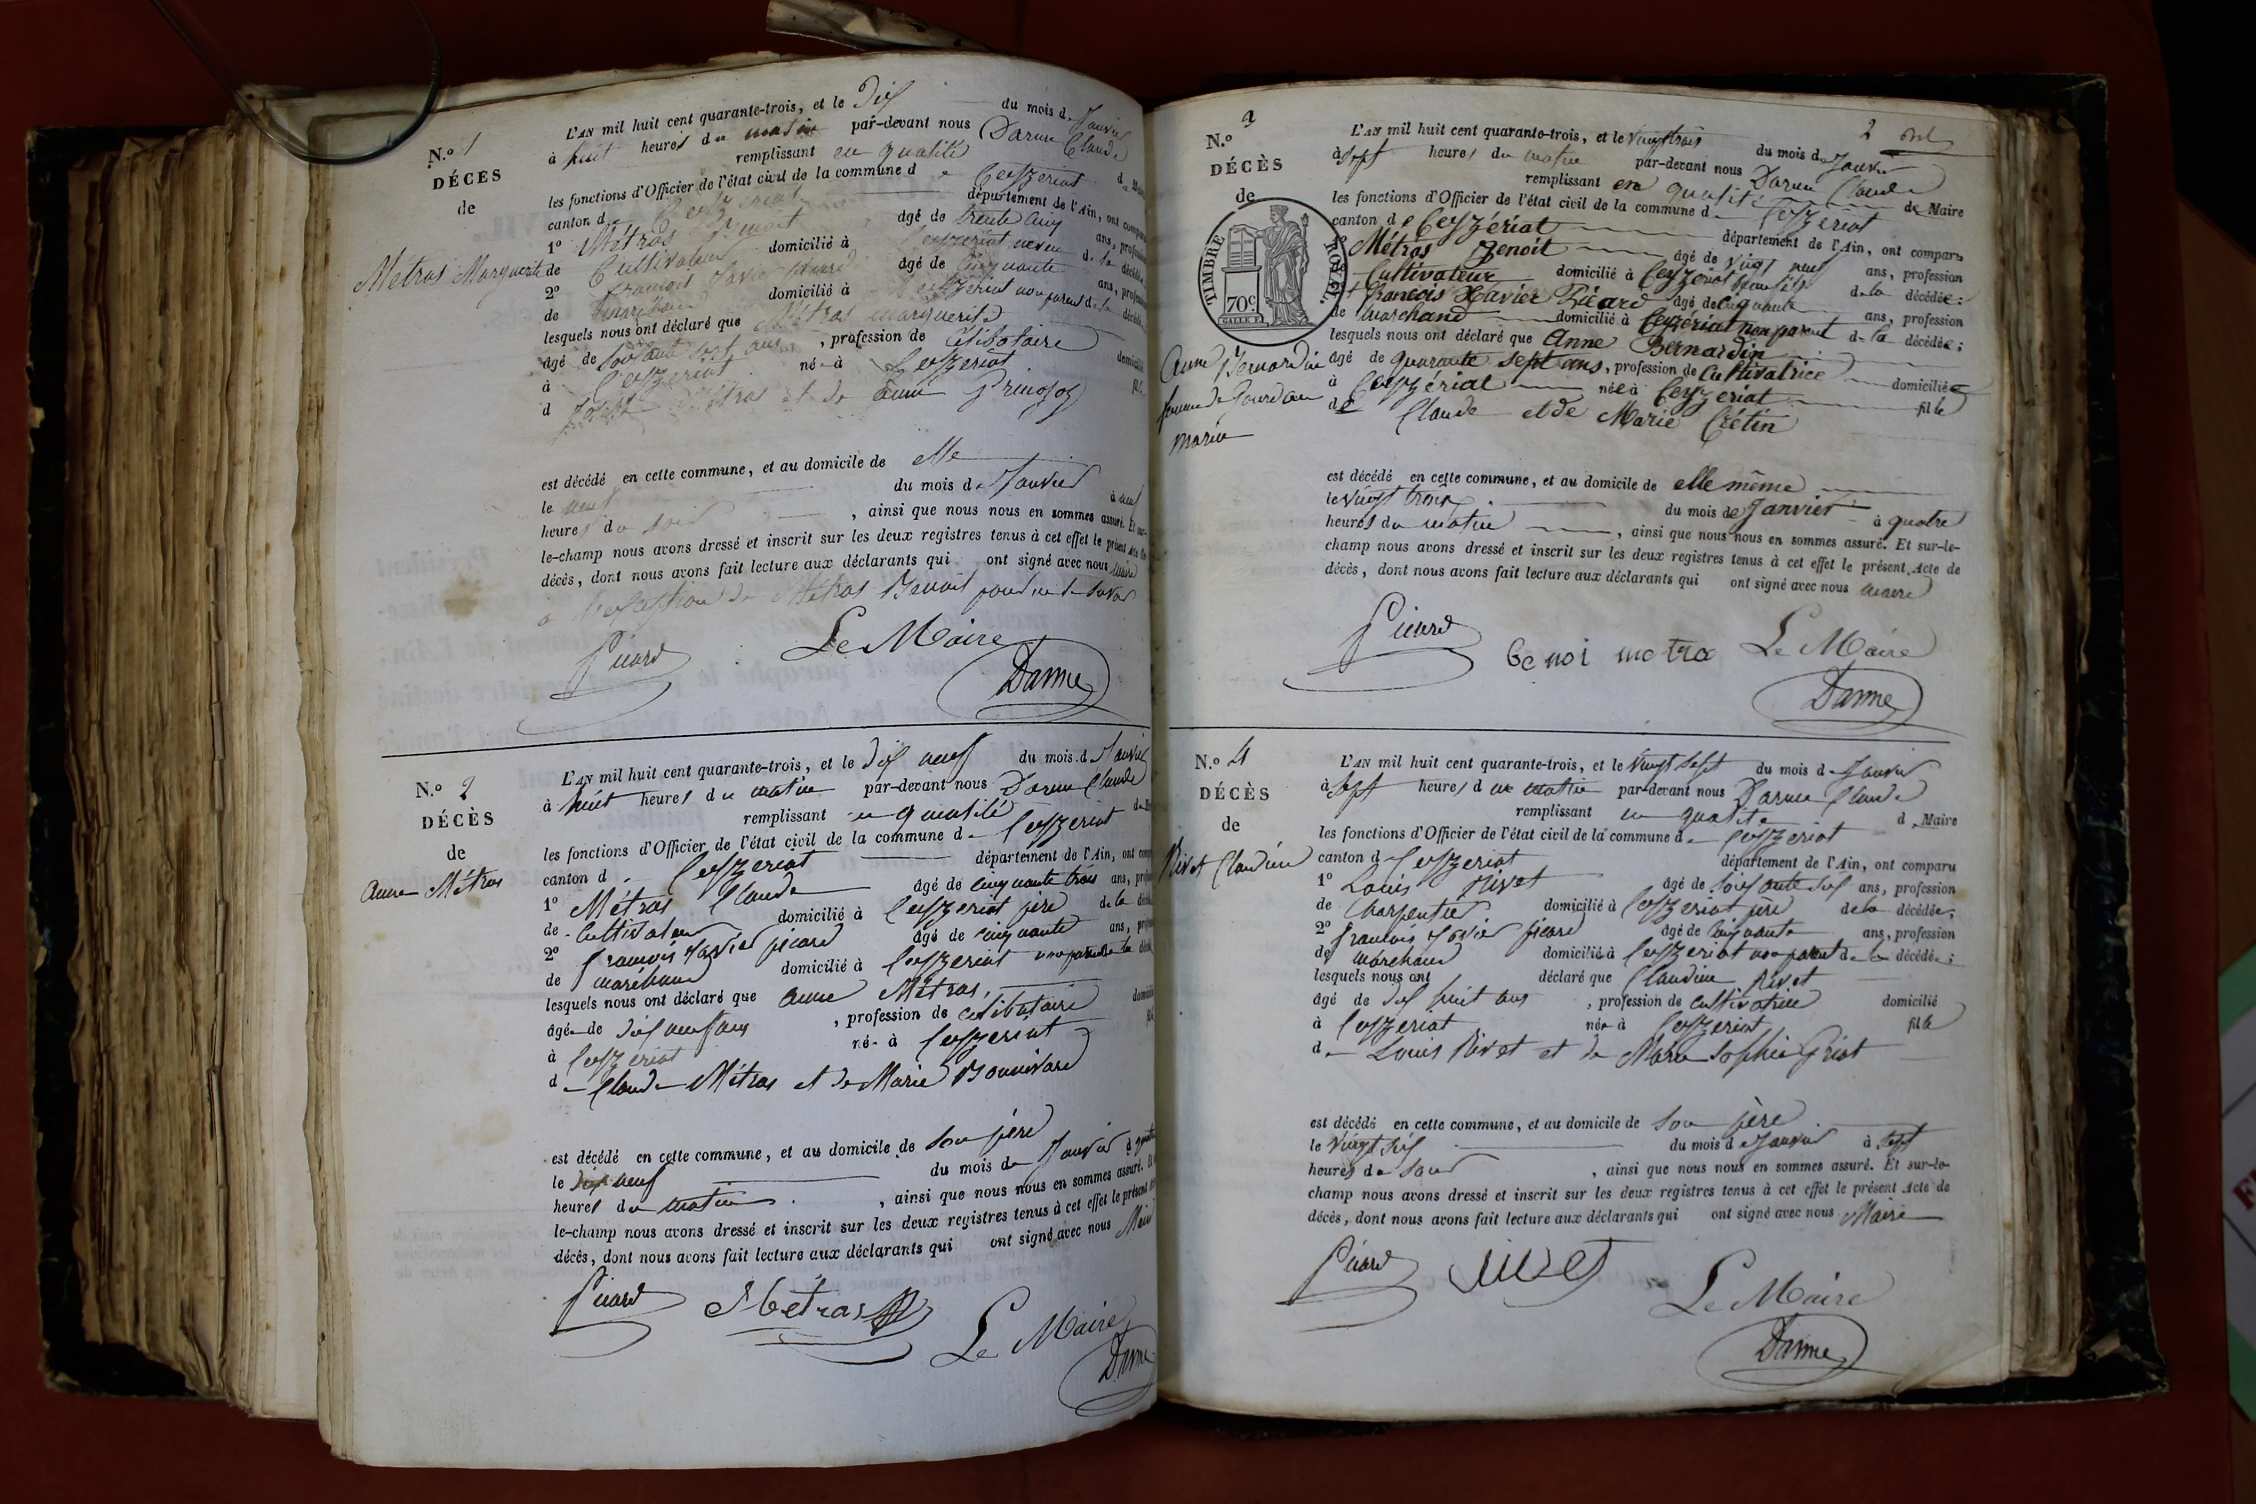 N.o 1
DÉCES
de
Métras Marguerite
L'AN mil huit cent quarante-trois, et le dix du mois de Janvier
à huit heures du matin par-devant nous Darme Claude
remplissant en qualité de
les fonctions d'Officier de l'état civil de la commune de Ceyzeriat
canton de Ceyzeriat département de l'Ain, ont
1o Métras Benoit âgé de trente cinq ans,
de Cultivateur domicilié à Ceyzeriat neveu de la
2o françois Xavier picard âgé de cinquante ans,
de marchand domicilié à Ceyzeriat non parent de la
lesquels nous ont déclaré que Métras marguerite
âgé de soixante sept ans, profession de célibataire
à Ceyzeriat né à Ceyzeriat
d Joseph Métras et de Anne
est décédé en cette commune, et au domicile de elle
le neuf du mois de Janvier à neuf
heures du soir, ainsi que nous nous en sommes assuré. Et sur-
le-champ nous avons dressé et inscrit sur les deux registres tenus à cet effet le présent Acte de
décès, dont nous avons fait lecture aux déclarants qui ont signé avec nous Maire
à l'exception de Métras Benoit pour ne le savoir
Picard Le Maire
Darme
N.o 2
DÉCÈS
de
Anne Métras
L'AN mil huit cent quarante-trois, et le dix neuf du mois de Janvier
à huit heures du matin par-devant nous Darme Claude
remplissant en qualité de
les fonctions d'Officier de l'état civil de la commune de Ceyzeriat
canton de Ceyzeriat département de l'Ain, ont
1o Métras Claude âgé de cinquante trois ans,
de Cultivateur domicilié à Ceyzeriat père de la
2o françois Xavier picard âgé de cinquante ans,
de marchand domicilié à Ceyzeriat non parent de la
lesquels nous ont déclaré que anne Métras,
âgée de dix neuf ans, profession de célibataire
à Ceyzeriat née à Ceyzeriat
de Claude Métras et de Marie Bonnivard
est décédé en cette commune, et au domicile de son père
le dix neuf du mois de Janvier à quatre
heures du matin, ainsi que nous nous en sommes assuré. Et
le-champ nous avons dressé et inscrit sur les deux registres tenus à cet effet le présent
décès, dont nous avons fait lecture aux déclarants qui ont signé avec nous Maire
Picard Métras
Le Maire
Darme
2
N.o 3
DÉCÈS
de
TIMBRE ROYAL
70c
Anne Bernardin
femme de Jourdan
marie
L'AN mil huit cent quarante-trois, et le vingt trois du mois de Janvier
à sept heures du matin par-devant nous Darme Claude
remplissant en qualité de Maire
les fonctions d'Officier de l'état civil de la commune de Ceyzeriat
canton de Ceyzériat département de l'Ain, ont comparu
Métras Benoit âgé de vingt neuf ans, profession
Cultivateur domicilié à Ceyzeriat de la décédée;
françois Xavier Picard âgé de cinquante ans, profession
de marchand domicilié à Ceyzériat non parent de la décédée;
lesquels nous ont déclaré que Anne Bernardin
âgé de quarante sept ans, profession de Cultivatrice domiciliée
à Ceyzériat née à Ceyzeriat fille
de Claude et de Marie Crétin
est décédé en cette commune, et au domicile de elle même
le vingt trois du mois de Janvier à quatre
heures du matin, ainsi que nous nous en sommes assuré. Et sur-le-
champ nous avons dressé et inscrit sur les deux registres tenus à cet effet le présent Acte de
décès, dont nous avons fait lecture aux déclarants qui ont signé avec nous Maire
Picard benoi metra Le Maire
Darme
N.o 4
DÉCÈS
de
Rivet Claudine
L'AN mil huit cent quarante-trois, et le vingt sept du mois de Janvier
à sept heures du matin par-devant nous Darme Claude
remplissant en qualité de Maire
les fonctions d'Officier de l'état civil de la commune de Ceyzeriat
canton de Ceyzeriat département de l'Ain, ont comparu
1o Louis Rivet âgé de soixante six ans, profession
de Charpentier domicilié à Ceyzeriat père de la décédée;
2o françois Xavier picard âgé de cinquante ans, profession
de marchand domicilié à Ceyzeriat non parent de la décédée;
lesquels nous ont déclaré que Claudine Rivet
âgé de dix huit ans, profession de cultivatrice domicilié
à Ceyzeriat née à Ceyzeriat fille
de Louis Rivet et de Marie Sophie
est décédé en cette commune, et au domicile de son père
le vingt six du mois de Janvier à sept
heures du soir, ainsi que nous nous en sommes assuré. Et sur-le-
champ nous avons dressé et inscrit sur les deux registres tenus à cet effet le présent Acte de
décès, dont nous avons fait lecture aux déclarants qui ont signé avec nous Maire
Picard rivet
Le Maire
Darme